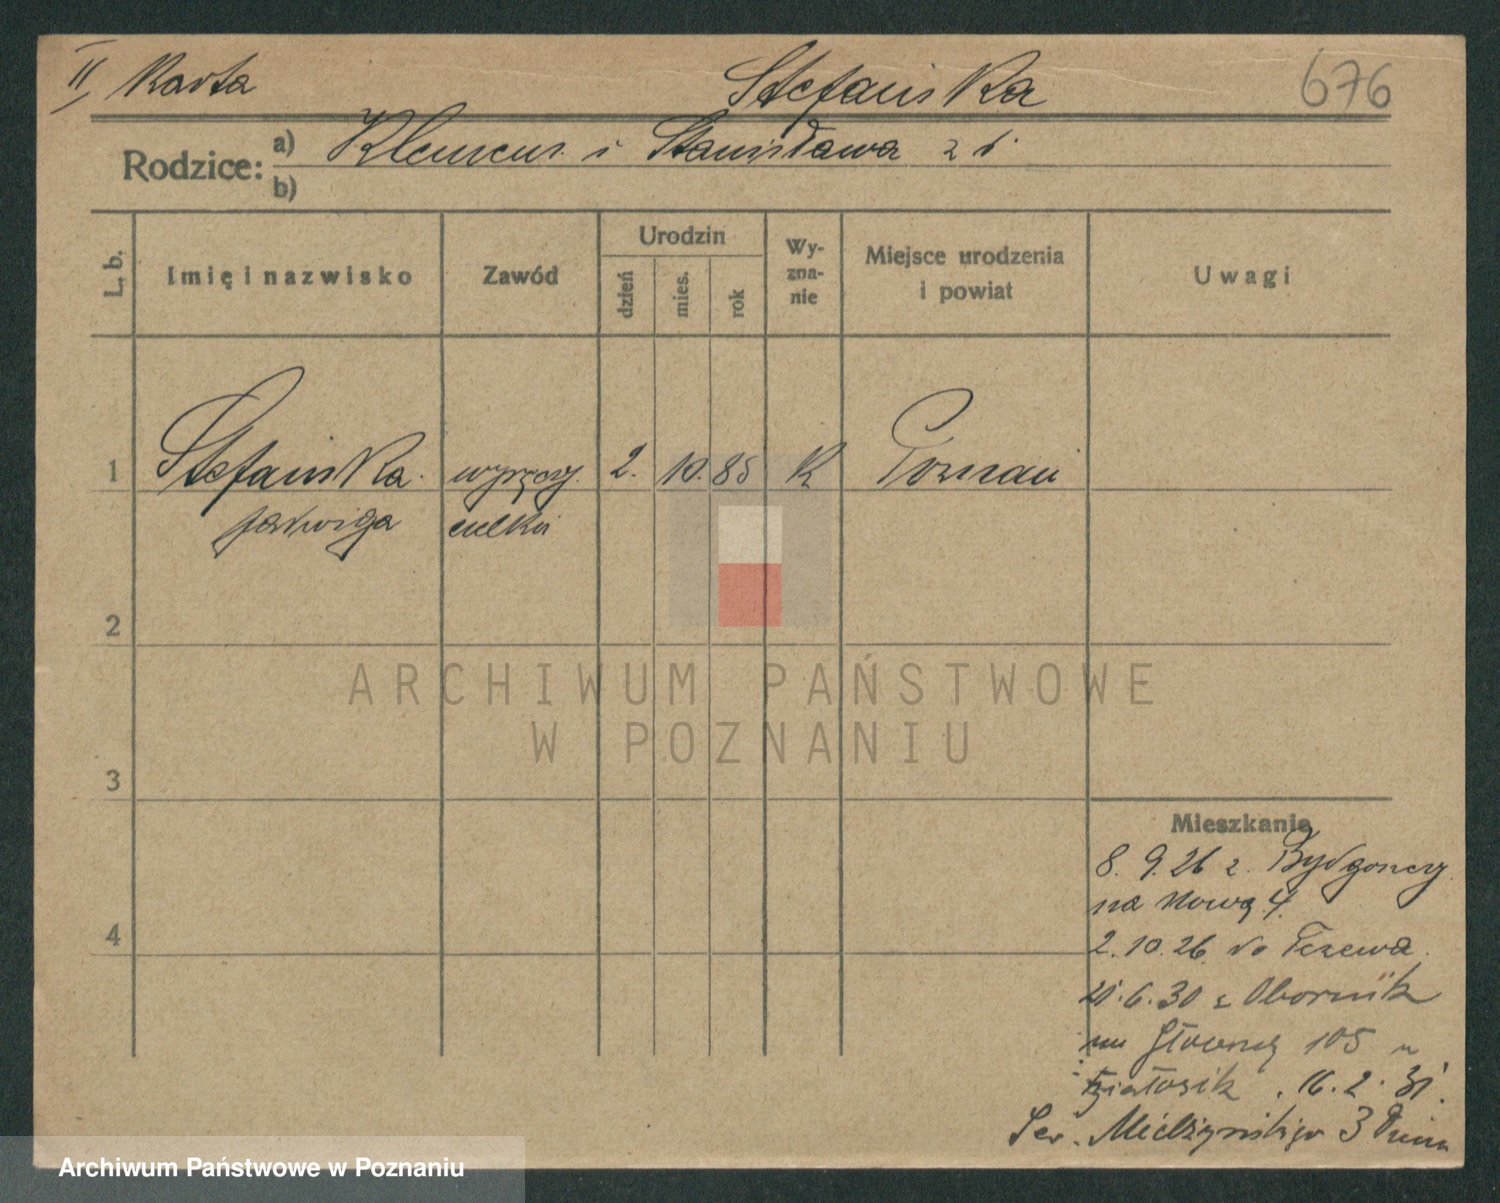 II, Karta Stefańska 676
Rodzice: a) Klemens i Stanisława z d.
b)
L. b.
Imię i nazwisko
Zawód
Urodzin
dzień
mies.
rok
Wy-
zna-
nie
Miejsce urodzenia
i powiat
Uwagi
1 Stefańska wyręczy 2. 10. 85 K Poznań
Jadwiga cielka
2
ARCHIWUM PAŃSTWOWE
W POZNANIU
3
Mieszkanie
8. 9. 26 z Bydgoszczy
na Nową 4.
4
2. 10. 26. do Tczewa.
6. 30 z Obornik
na Główną 105 u
16. 2. 31.
Sew. Mielżyńskiego 3
Archiwum Państwowe w Poznaniu